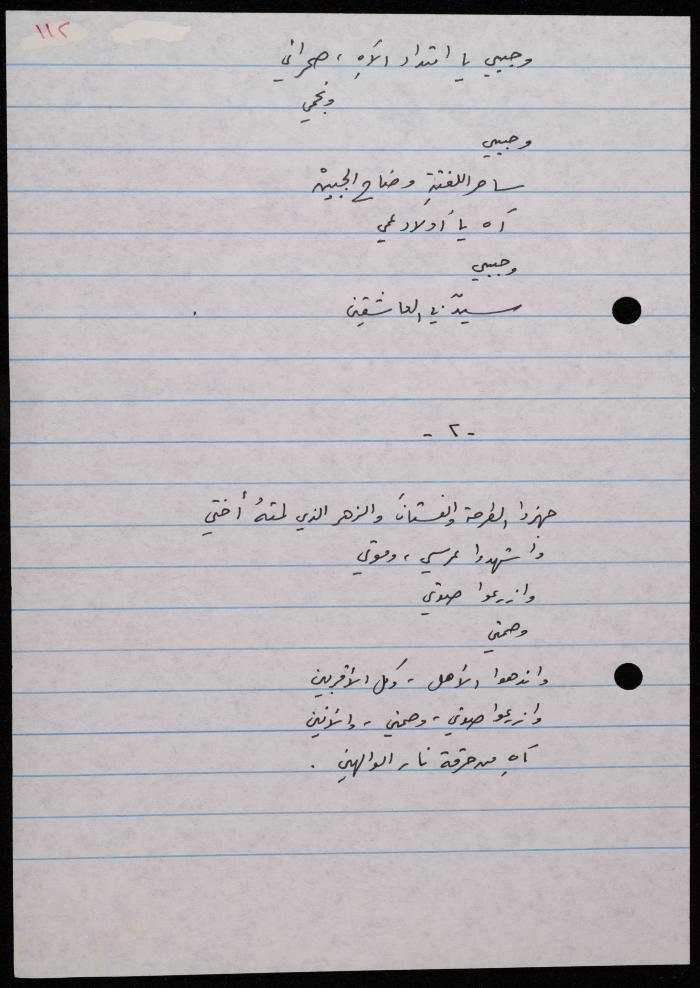 ١١٢
وحبيبي يا امتداد الآهِ ، صحرائي
ونجمي
وحبيبي
ساحر اللفتةِ وضاح الجبينْ
آه يا أولاد عمي
وحبيبي
سيدٌ في العاشقين .
- ٢ -
جهزوا الطرحة والفستانَ والزهر الذي لمتهُ أختي
واشهدوا عرسي ، وموتي
وازرعوا صوتي
وصمتي
واندهوا الأهل - وكل الأقربين
وازرعوا صوتي - وصمتي - والأنين
آهِ من حرقة نار الوالهين .